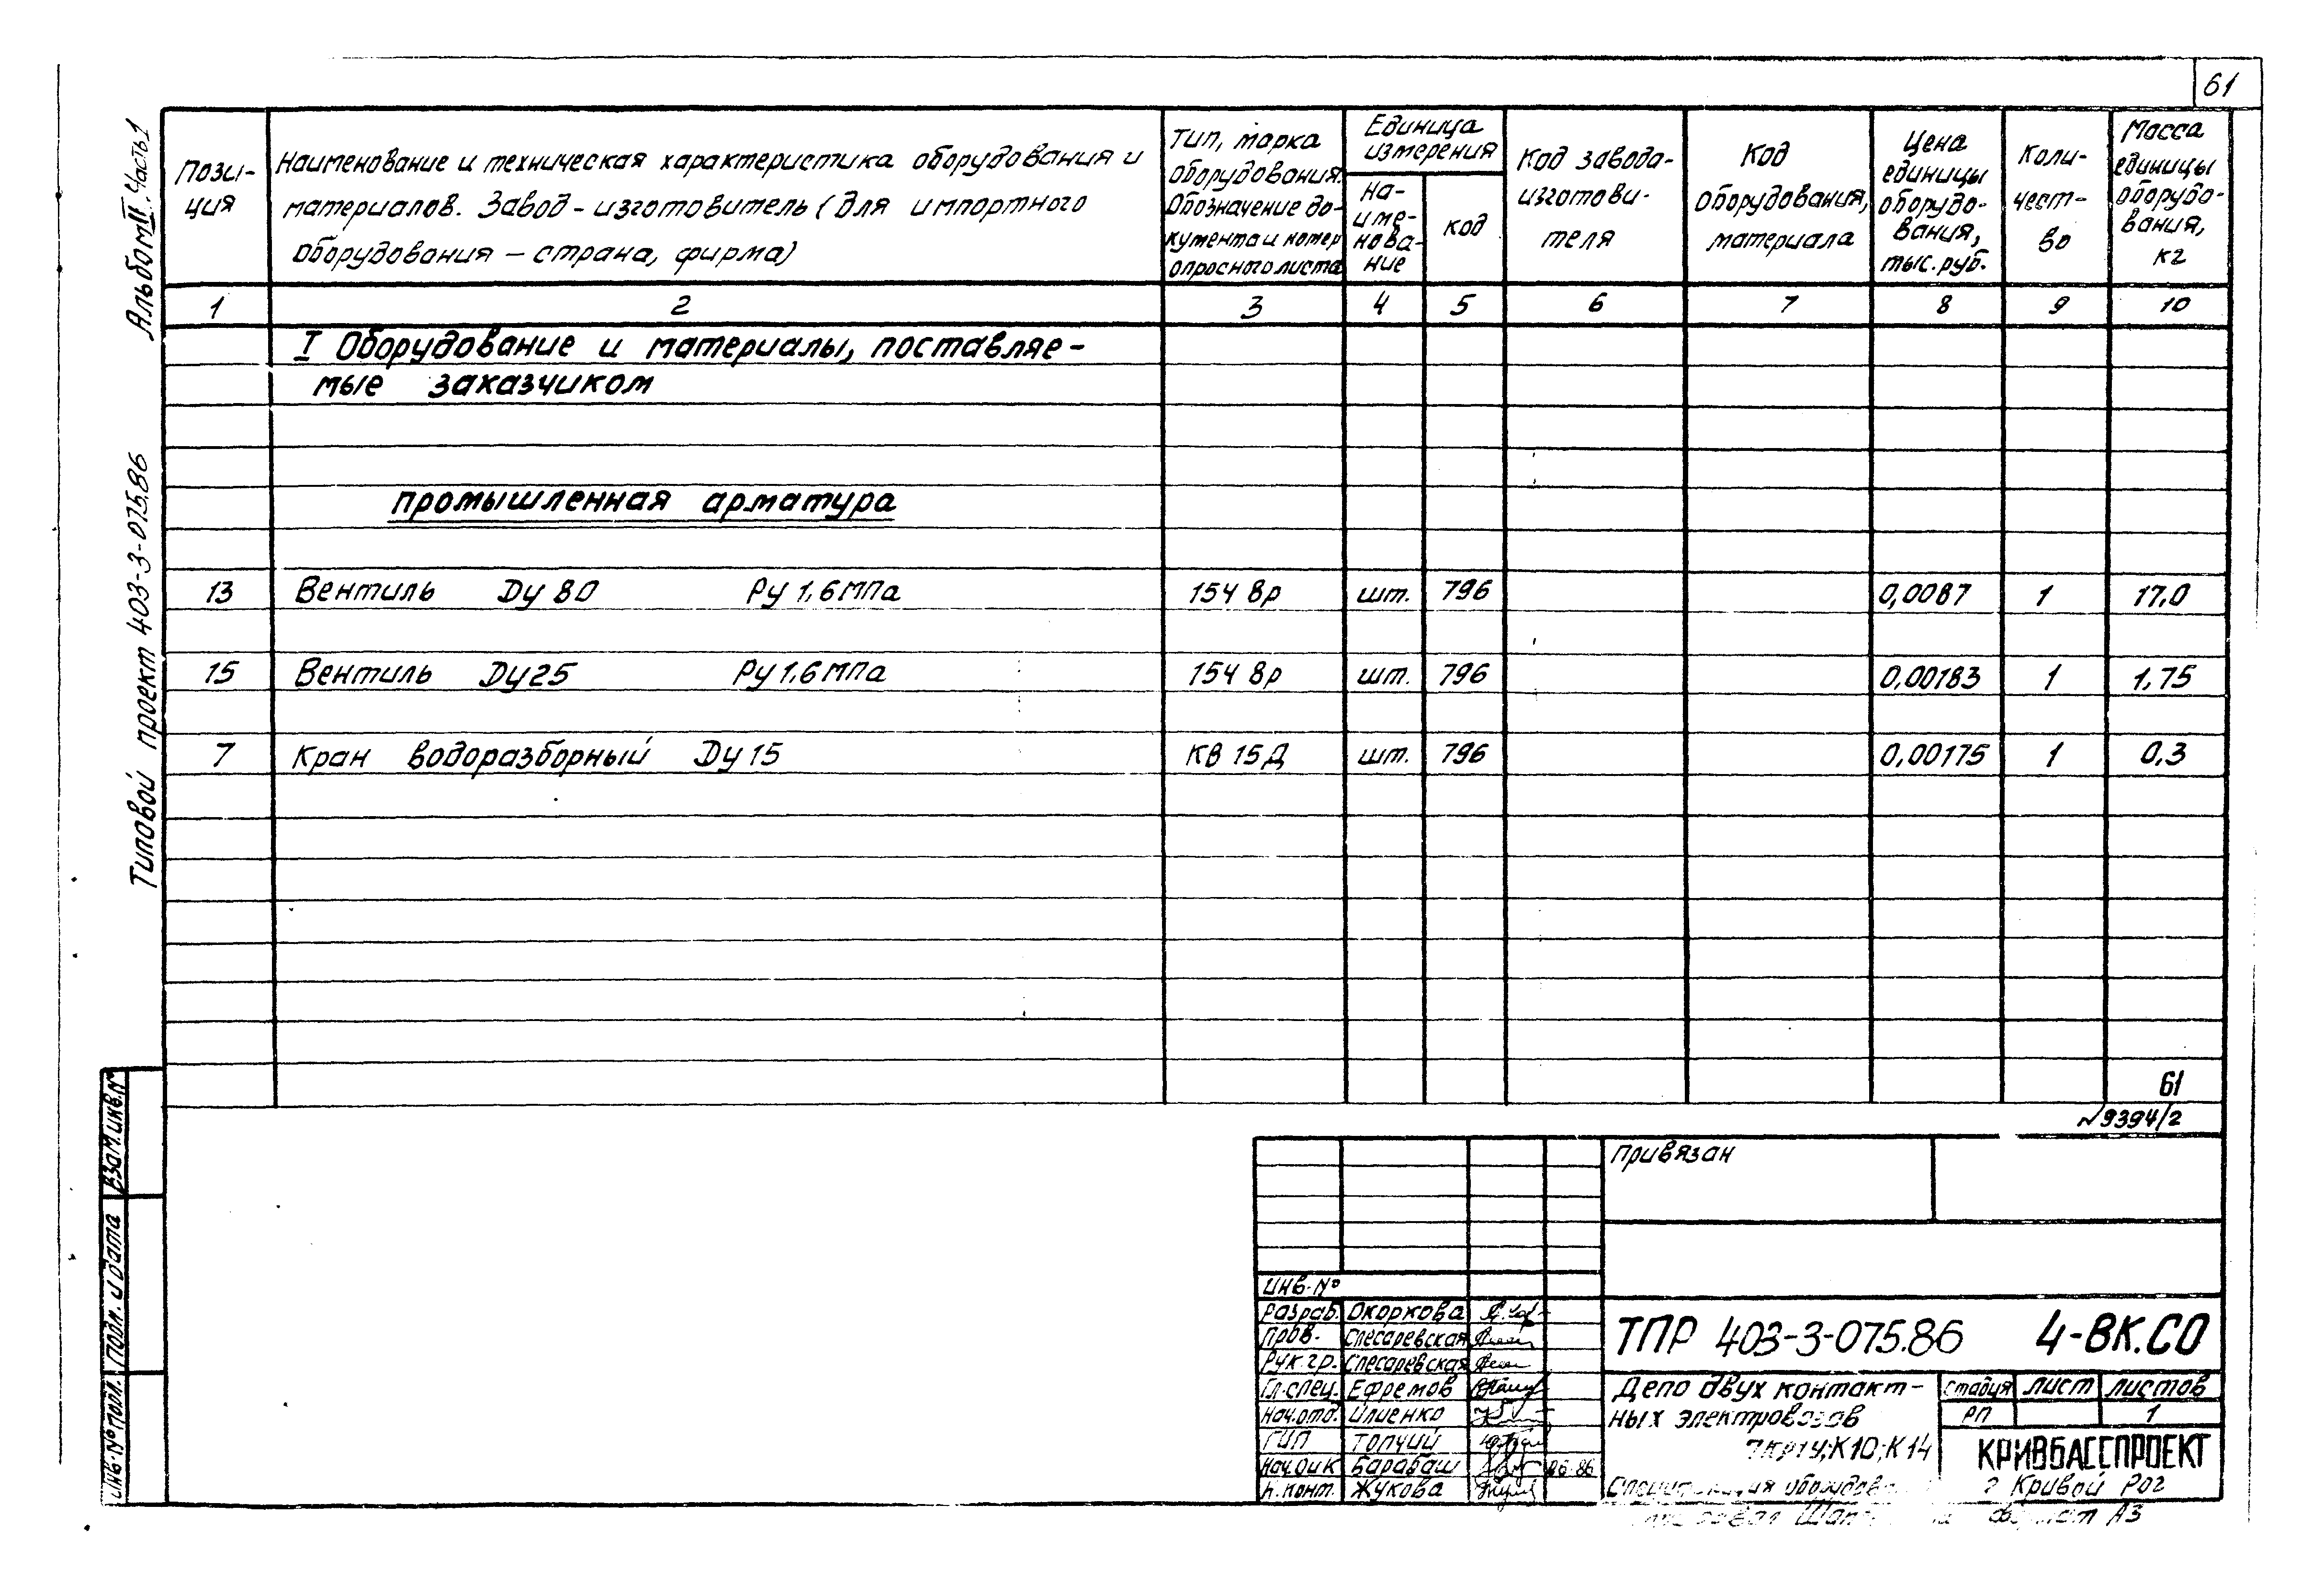 61
Альбом II. Часть 1
Типовой проект 403-3-075.86
Пози-
ция
Наименование и техническая характеристика оборудования и
материалов. Завод-изготовитель (для импортного
оборудования – страна, фирма)
Тип, марка
оборудования.
Обозначение до-
кумента и номер
опросного листа
Единица
измерения
На-
име-
нова-
ние
код
Код завода-
изготови-
теля
Код
оборудования,
материала
Цена
единицы
оборудо-
вания,
тыс. руб.
Коли-
чест-
во
Масса
единицы
оборудо-
вания,
кг
1 2 3 4 5 6 7 8 9 10
I Оборудование и материалы, поставляе-
мые заказчиком
промышленная арматура
13 Вентиль Ду 80 Ру 1,6 мПа 15ч 8р шт. 796 0,0087 1 17,0
15 Вентиль Ду 25 Ру 1,6 мПа 15ч 8р шт. 796 0,00183 1 1,75
7 Кран водоразборный Ду 15 КВ 15Д шт. 796 0,00175 1 0,3
61
N9394/2
Взам. инв. №
Подп. и дата
Инв. № подл.
Привязан
Инв. №
Разраб. Окоркова
Пров. Слесаревская
Рук. гр. Слесаревская
Гл. спец. Ефремов
Нач. отд. Илиенко
ГИП Топчий
Нач. ОИК Барабаш 06-86
Н. конт. Жукова
ТПР 403-3-075.86 4-ВК.СО
Депо двух контакт-
ных электровозов
7КР1У; К10; К14
Стадия лист листов
РП 1
КРИВБАССПРОЕКТ
г Кривой Рог
Формат А3